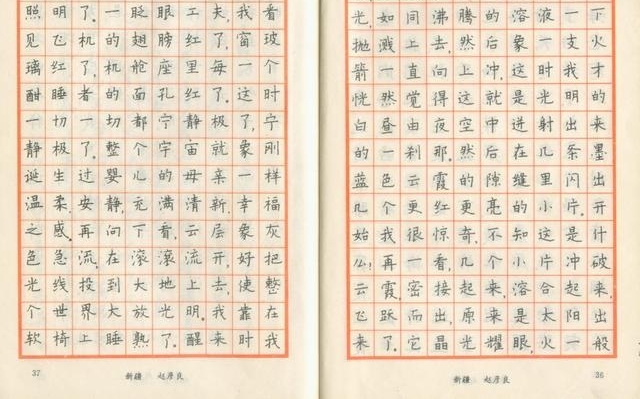 光,如同沸腾的溶液一下
抛溅上去,然后象一支火
箭一直向上冲,这时我才
恍然觉得这就是光明的
白昼由夜空中迸射出来
的一刹那。然后在几条墨
蓝色云霞的隙缝里闪出
几个更红更亮的小片。开
始我很惊奇,不知这是什
么?再一看,几个小片冲破
云霞,密接起来,溶合起来,
飞跃而出,原来是太阳出
来了。它晶光耀眼,火一般
新疆 赵彦良 36
照明了。一眨眼工夫,我看
见飞机的翅膀红了,窗玻
璃红了,机舱座里每一个
酣睡者的面孔红了。这时
一切一切都宁静极了,宁
静极了。整个宇宙就象刚
诞生过婴儿的母亲一样
温柔、安静,充满清新、幸福
之感。再向下看,云层象灰
色急流,在滚滚流开,好把
光线投到大地上去,使整
个世界大放光明。我靠在
软椅上睡熟了。醒来时我
37 新疆 赵彦良